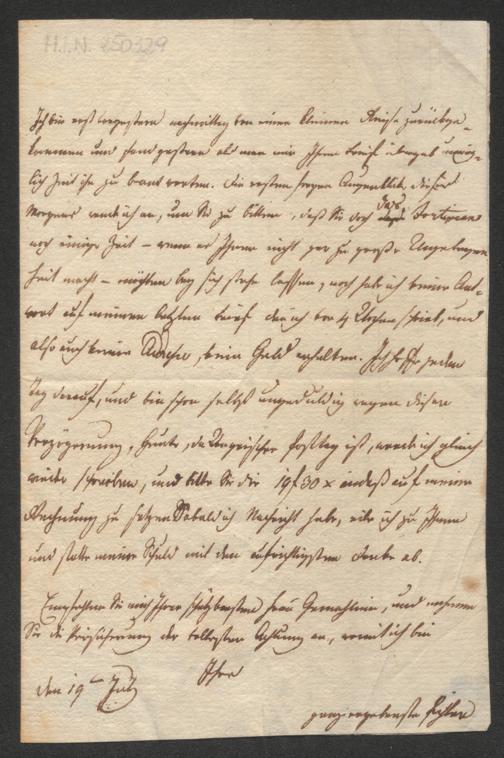 H.I.N. 250329
Ich bin erst vorgestern nachmittag von einer kleinen Reise zurückge-
kommen und fand gestern als man mir Ihren Brief übergab
lich Zeit ihn zu beantworten. Die ersten freyen Augenblick dieses
Morgens wende ich an, um Sie zu bitten, daß Sie doch das Fortepiano
noch einige Zeit – wenn es Ihnen nicht gar zu große Ungelegen-
heit macht – möchten bey sich stehn lassen, noch hab ich keine Ant-
wort auf meinen letzten Brief den ich vor 4 Wochen schrieb, und
also auch keine, kein Geld erhalten. Ich hoffe jeden
Tag darauf, und bin schon selbst ungeduldig wegen dieser
Verzögerung, heute, da Ungrischer Posttag ist, werde ich gleich
wieder schreiben, und bitte Sie die 19f 30x indeß auf meine
Rechnung zu setzen Sobald ich Nachricht habe, eile ich zu Ihnen
und statte meine Schuld mit dem aufrichtigsten Danke ab.
Empfehlen Sie mich Ihrer schätzbarsten Frau Gemahlinn, und nehmen
Sie die Versicherung der vollesten Achtung an, womit ich bin
Ihre
den 19ten July
ganz ergebenste